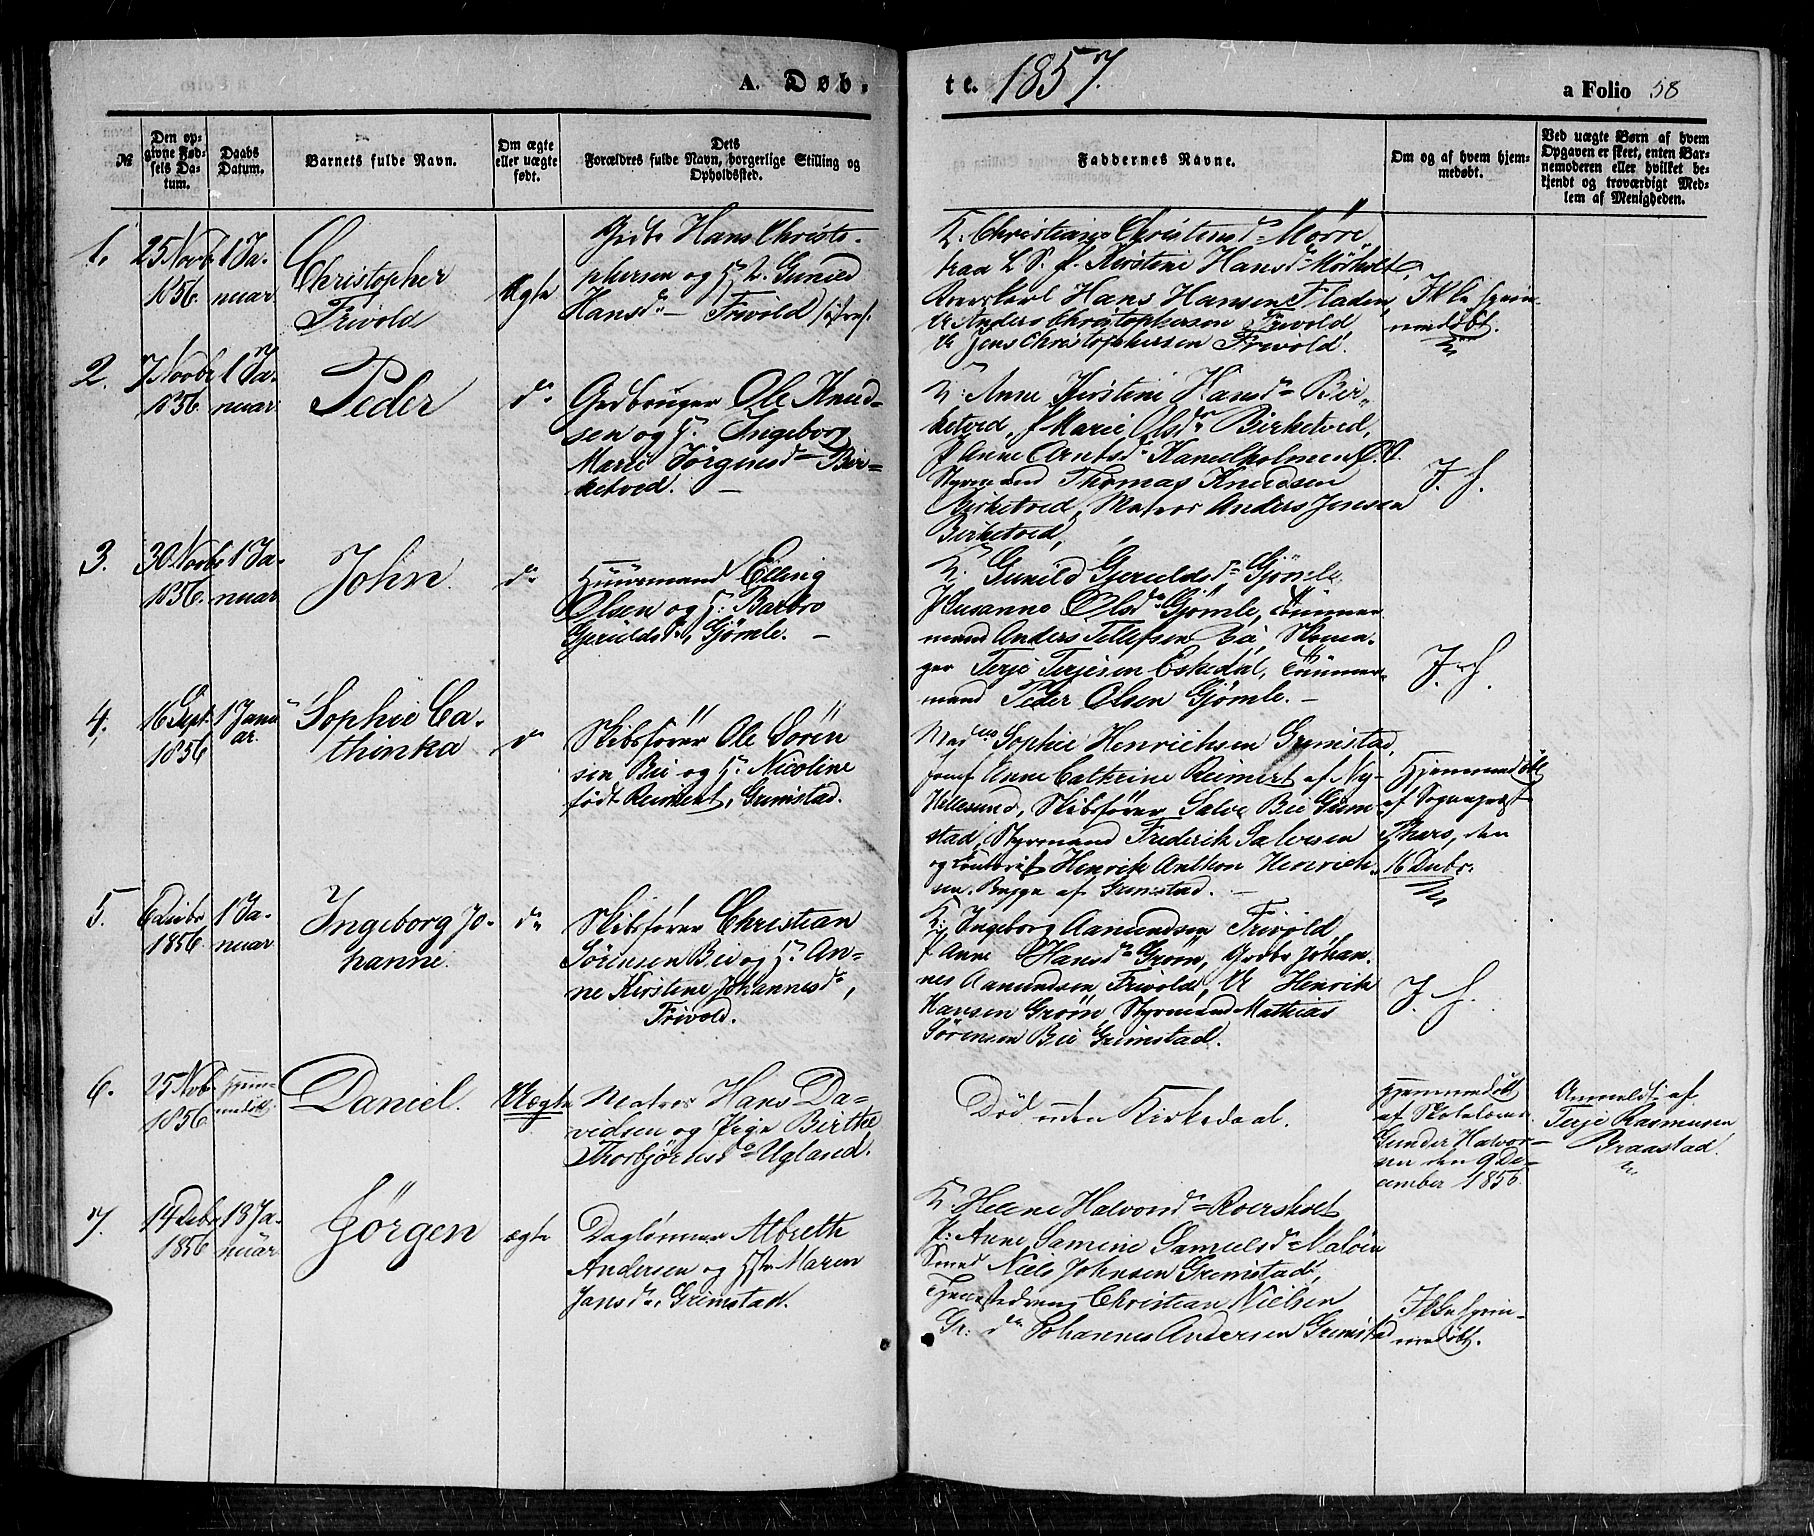 A. Døb-
te. 1857.
a Folio 58
№
Den op-
givne Fød-
sels Da-
tum.
Daabs
Datum.
Barnets fulde Navn.
Om ægte
eller uægte
født.
Dets
Forældres fulde Navn, borgerlige Stilling og
Opholdssted.
Faddernes Navne.
Om og af hvem hjem-
medøbt.
Ved uægte Børn af hvem
Opgaven er skeet, enten Bar-
nemoderen eller hvilket be-
kjendt og troværdigt Med-
lem af Menigheden.
1.
25 Novb
1856.
1 Ja-
nuar
Christopher
Frivold
Ægte
Grdb. Hans Christo-
phersen og H. Gunild
Hansd. Frivold
K. Christiane Christensd. Morre
Kirstine Hansd.
Hans Hansen Fladen,
Anders Christophersen Frivold
Jens Christophersen Frivold.
Ikke hjem-
medøbt.
2.
7 Novbr
1856.
1 Ja-
nuar
Peder
do
Grdbruger Ole Knud-
sen og H. Ingeborg
Marie Jørgensd. Bir-
ketved.
K. Anne Kirstine Hansd. Bir-
ketved, P Marie Olsd. Birketved,
P Anne Arntsd. Kaneelholmen
Styrmand Thomas Knudsen
Birketved, Matros Anders Jensen
Birketved,
I. H.
3.
30 Novbr
1856.
1 Ja-
nuar
John.
do
Huusmand Elling
Olsen og H. Barbro
Gjeruldsd., Gjömle.
K. Gunild Gjeruldsd. Gjömle
P Susanne Olsd. Gjömle, Tömmer
mand Anders Tellefsen
Terje Terjesen Eskedal, Tömmer-
mand Peder Olsen Gjömle.
I. H.
4.
16 Sept.
1856
1 Janu
ar.
Sophie Ca-
thinka
do
Skibsfører Ole Sören
sen Bie og H. Nicoline
født Reimert, Grimstad.
Mad. Sophie Henrichsen Grimstad,
Jomf. Anne Cathrine Reimert af Ny-
Hellesund, Skibsfører Salve Bie Grim-
stad, Styrmand Frederik Salvesen
og Henrik Anthon Henrich-
sen af Grimstad.
Hjemmedøbt
af Sognepræst
den
16 Decbr.
5.
6 Decbr
1856.
1 Ja-
nuar
Ingeborg Jo-
hanne.
do
Skibsfører Christian
Sørensen Bie og H. An-
ne Kirstine Johannesd.,
Frivold.
K. Ingeborg Aamundsen Frivold
P Anne Hansd. Grøm, Grdbr Johan-
nes Aamundsen Frivold, U Henrik
Hansen Grøm, Styrmand Mathias
Sørensen Bie Grimstad.
I. H.
6.
25 Nvb.
1856.
Hjem-
medøbt
Daniel.
Uægte
Matros Hans Da-
vidsen og Pige Birthe
Thorbjørnsd. Ugland.
Død uden Kirkedaab.
Hjemmedøbt
af Skolelærer
Gunder Halvor-
sen den 9 De-
cember 1856.
Anmeldt af
Terje Rasmusen
Braastad.
7.
14 Debr
1856
13 Ja-
nuar
Jørgen
ægte
Daglønner Albreth
Andersen og Hst. Maren
Jansd., Grimstad.
K. Helene Halvorsd. Roersholt
P: Anne Samine Samuelsd. Maløen
Smed Niels Johnsen Grimstad,
Tjenestedreng Christian Nielsen
Gr: do Johannes Andersen Grimstad
Ikke hjem-
medøbt.